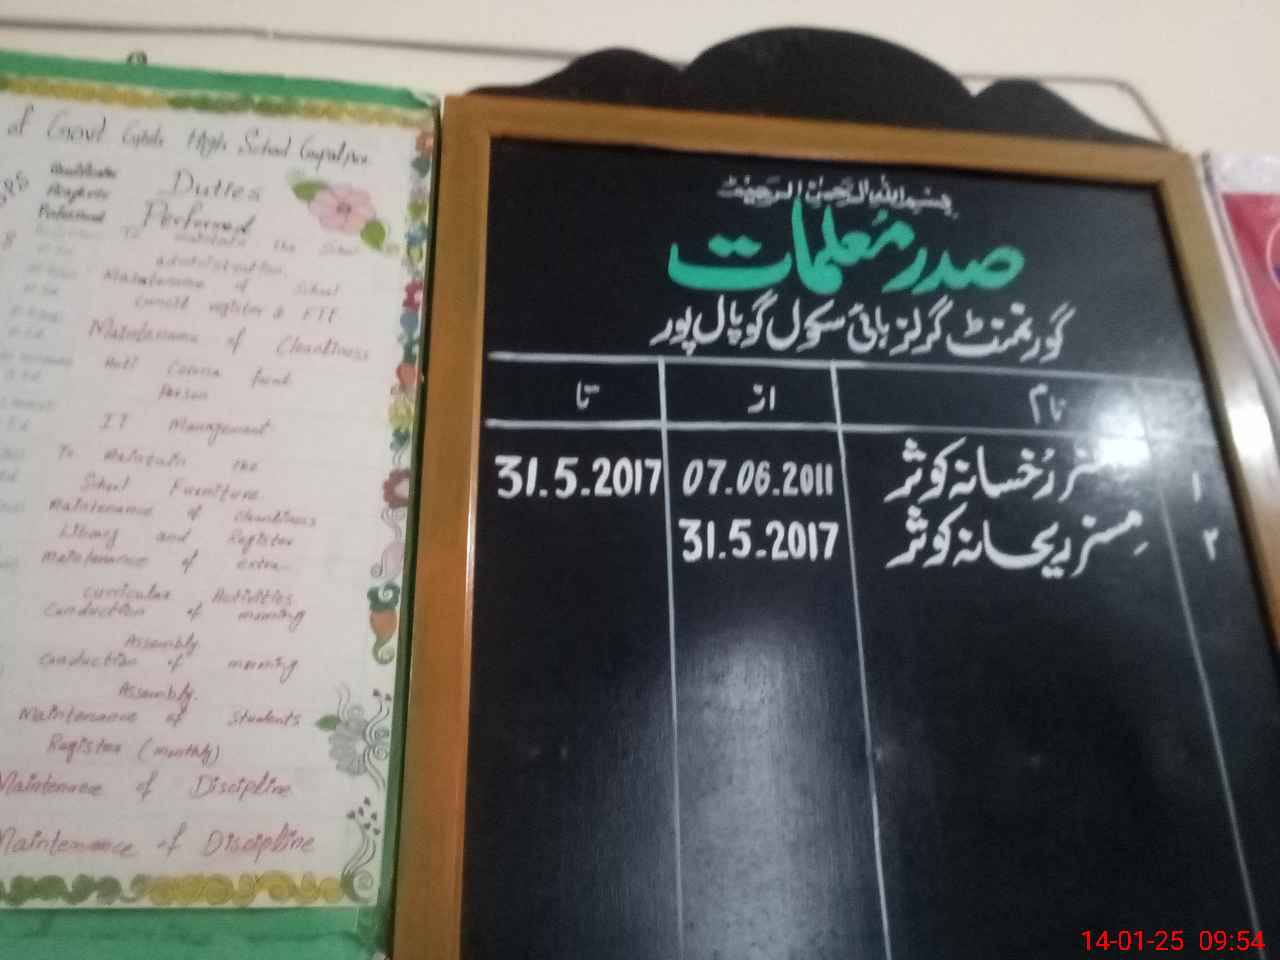 of Govt Girls High School Gopalpur
Qualification
Academic
Professional
Duties
Performed
To maintain the School
administration.
Maintenance of School
Council register & FTF
Maintenance of Cleanliness
Anti Corona focal
Person
IT Management
To Maintain the
School Furniture
Maintenance of cleanliness
Library and Register
Maintenance of extra
curricular Activities
Conduction of morning
Assembly
Conduction of morning
Assembly.
Maintenance of Students
Register (monthly)
Maintenance of Discipline
Maintenance of Discipline
بسم اللہ الرحمٰن الرحیم
صدر مُعلمات
گورنمنٹ گرلز ہائی سکول گوپال پور
نام از تا
۱ مسز رُخسانہ کوثر 07.06.2011 31.5.2017
۲ مِسز ریحانہ کوثر 31.5.2017
14-01-25 09:54